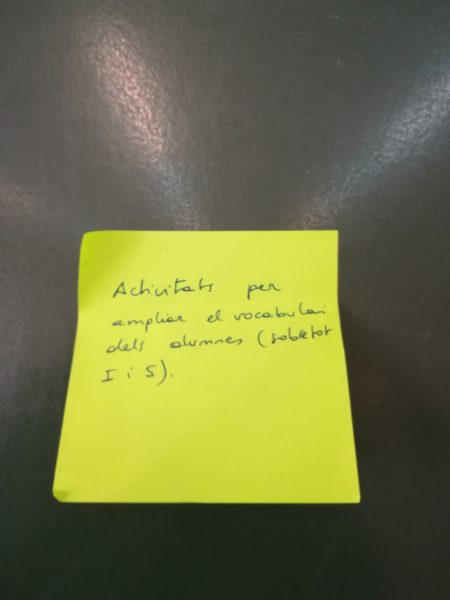 Activitats per
ampliar el vocabulari
dels alumnes (sobretot
I i S).